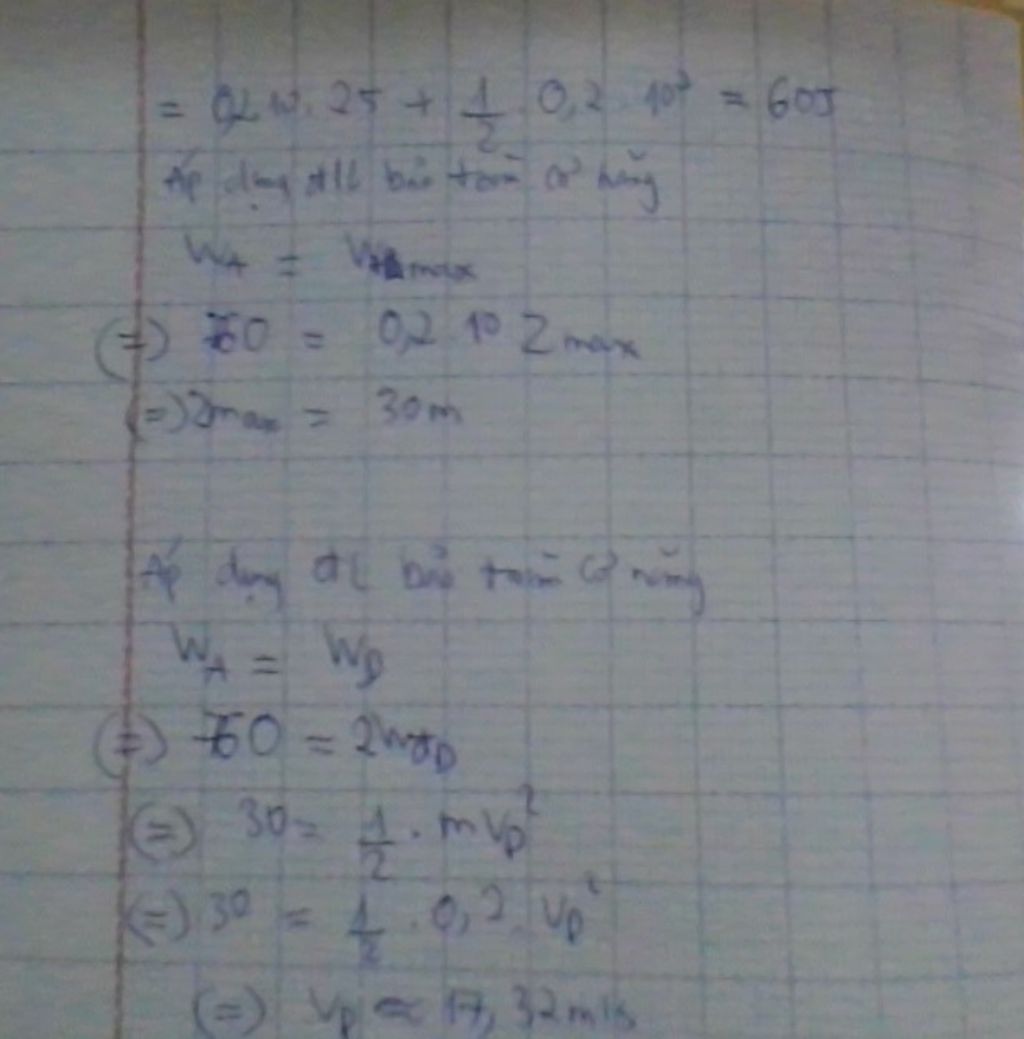 = 0,2.10.25 + 1/2 . 0,2 . 10² = 60J
Áp dụng đlL bảo toàn cơ năng
W_A = W_max
(=) 60 = 0,2.10 Z_max
(=) Z_max = 30m
Áp dụng đL bảo toàn cơ năng
W_A = W_D
(=) 60 = 2W_đD
(=) 30 = 1/2 . m V_D²
(=) 30 = 1/2 . 0,2 . V_D²
(=) V_D ≈ 17,32 m/s